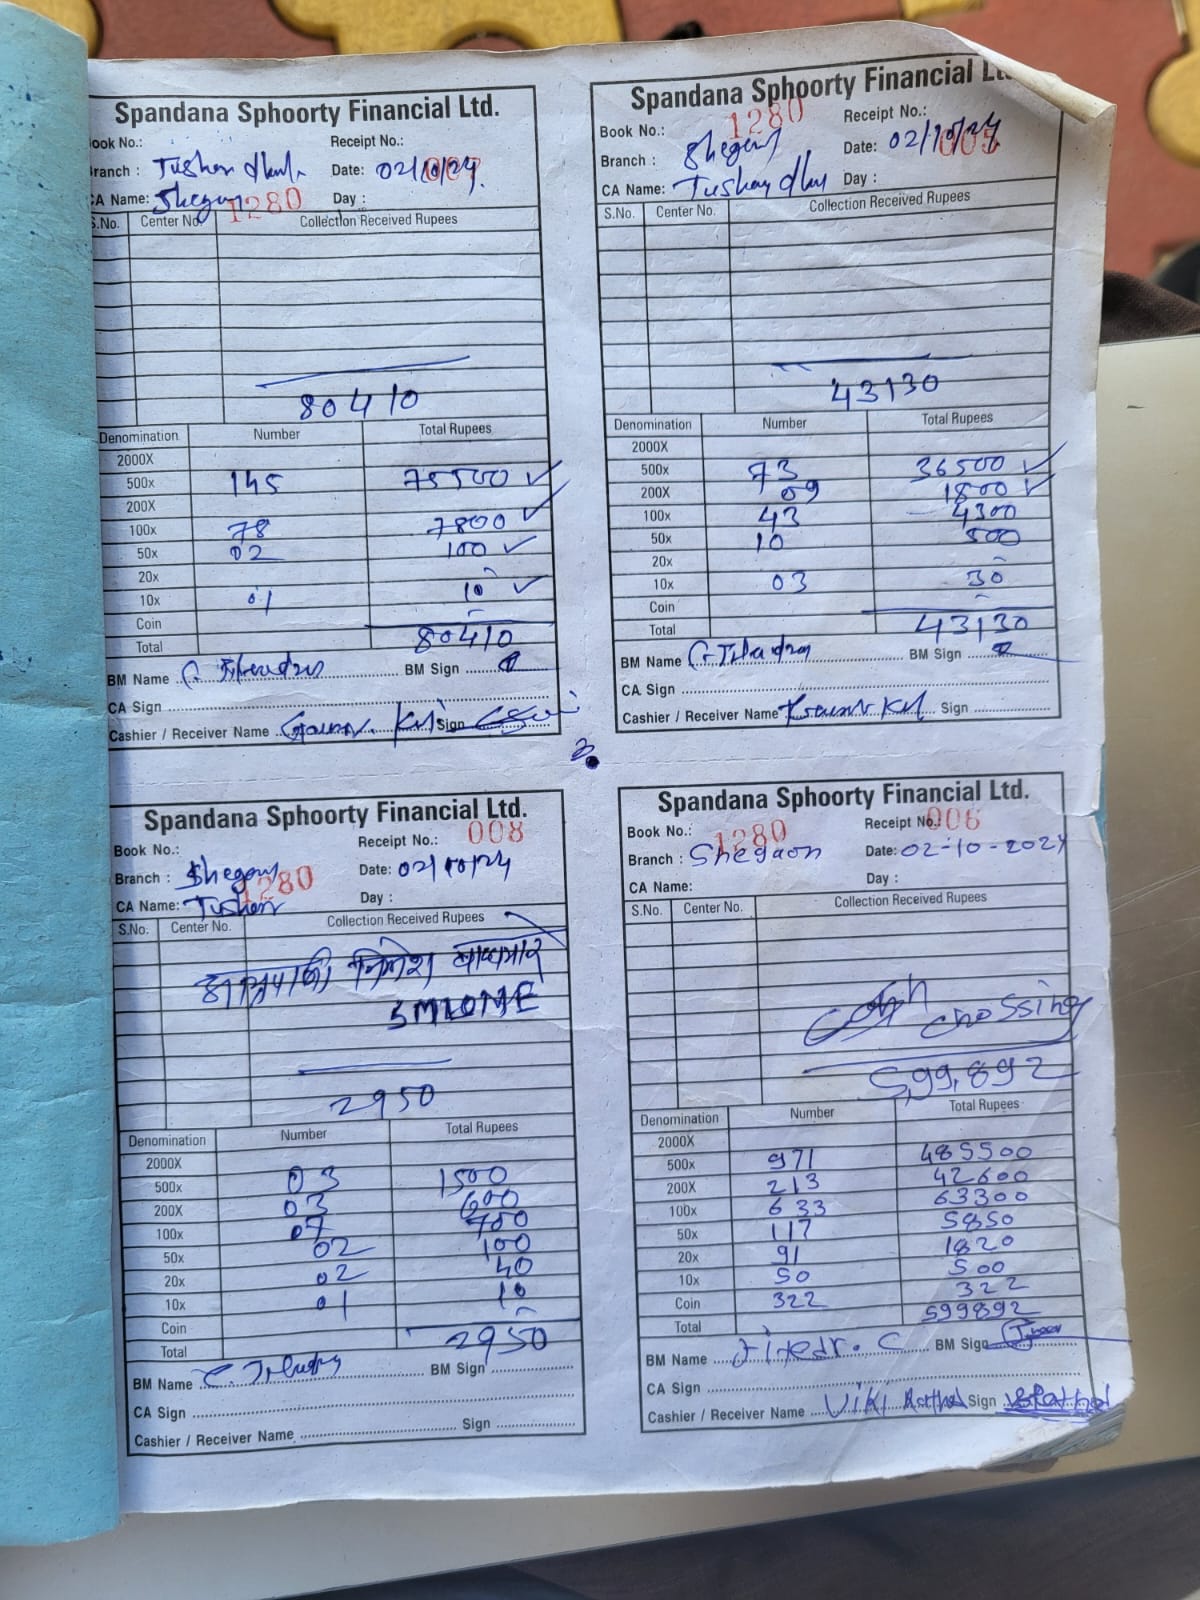 Spandana Sphoorty Financial Ltd.
ook No.:
Receipt No.:
007
ranch : Tushar
Date: 02/10/24
A Name: Shegaon
1280
Day :
S.No. Center No. Collection Received Rupees
80410
Denomination Number Total Rupees
2000X
500x 145 75500 ✓
200X
100x 78 7800 ✓
50x 02 100 ✓
20x -
10x 01 10 ✓
Coin -
Total 80410
BM Name
BM Sign
CA Sign
Cashier / Receiver Name
Sign
Spandana Sphoorty Financial
Book No.: 1280
Receipt No.:
005
Branch : Shegaon
Date: 02/10/24
CA Name: Tushar
Day :
S.No. Center No. Collection Received Rupees
43130
Denomination Number Total Rupees
2000X
500x 73 36500 ✓
200X 09 1800 ✓
100x 43 4300
50x 10 500
20x -
10x 03 30
Coin -
Total 43130
BM Name
BM Sign
CA Sign
Cashier / Receiver Name
Sign
Spandana Sphoorty Financial Ltd.
Book No.:
Receipt No.: 008
Branch : Shegaon
Date: 02/10/24
1280
CA Name: Tushar
Day :
S.No. Center No. Collection Received Rupees
2950
Denomination Number Total Rupees
2000X
500x 03 1500
200X 03 600
100x 07 700
50x 02 100
20x 02 40
10x 01 10
Coin -
Total 2950
BM Name
BM Sign
CA Sign
Cashier / Receiver Name
Sign
Spandana Sphoorty Financial Ltd.
Book No.: 1280
Receipt No.: 006
Branch : Shegaon
Date: 02-10-2024
CA Name:
Day :
S.No. Center No. Collection Received Rupees
Cash chossing
5,99,892
Denomination Number Total Rupees
2000X
500x 971 485500
200X 213 42600
100x 633 63300
50x 117 5850
20x 91 1820
10x 50 500
Coin 322 322
Total 599892
BM Name
BM Sign
CA Sign
Cashier / Receiver Name
Sign